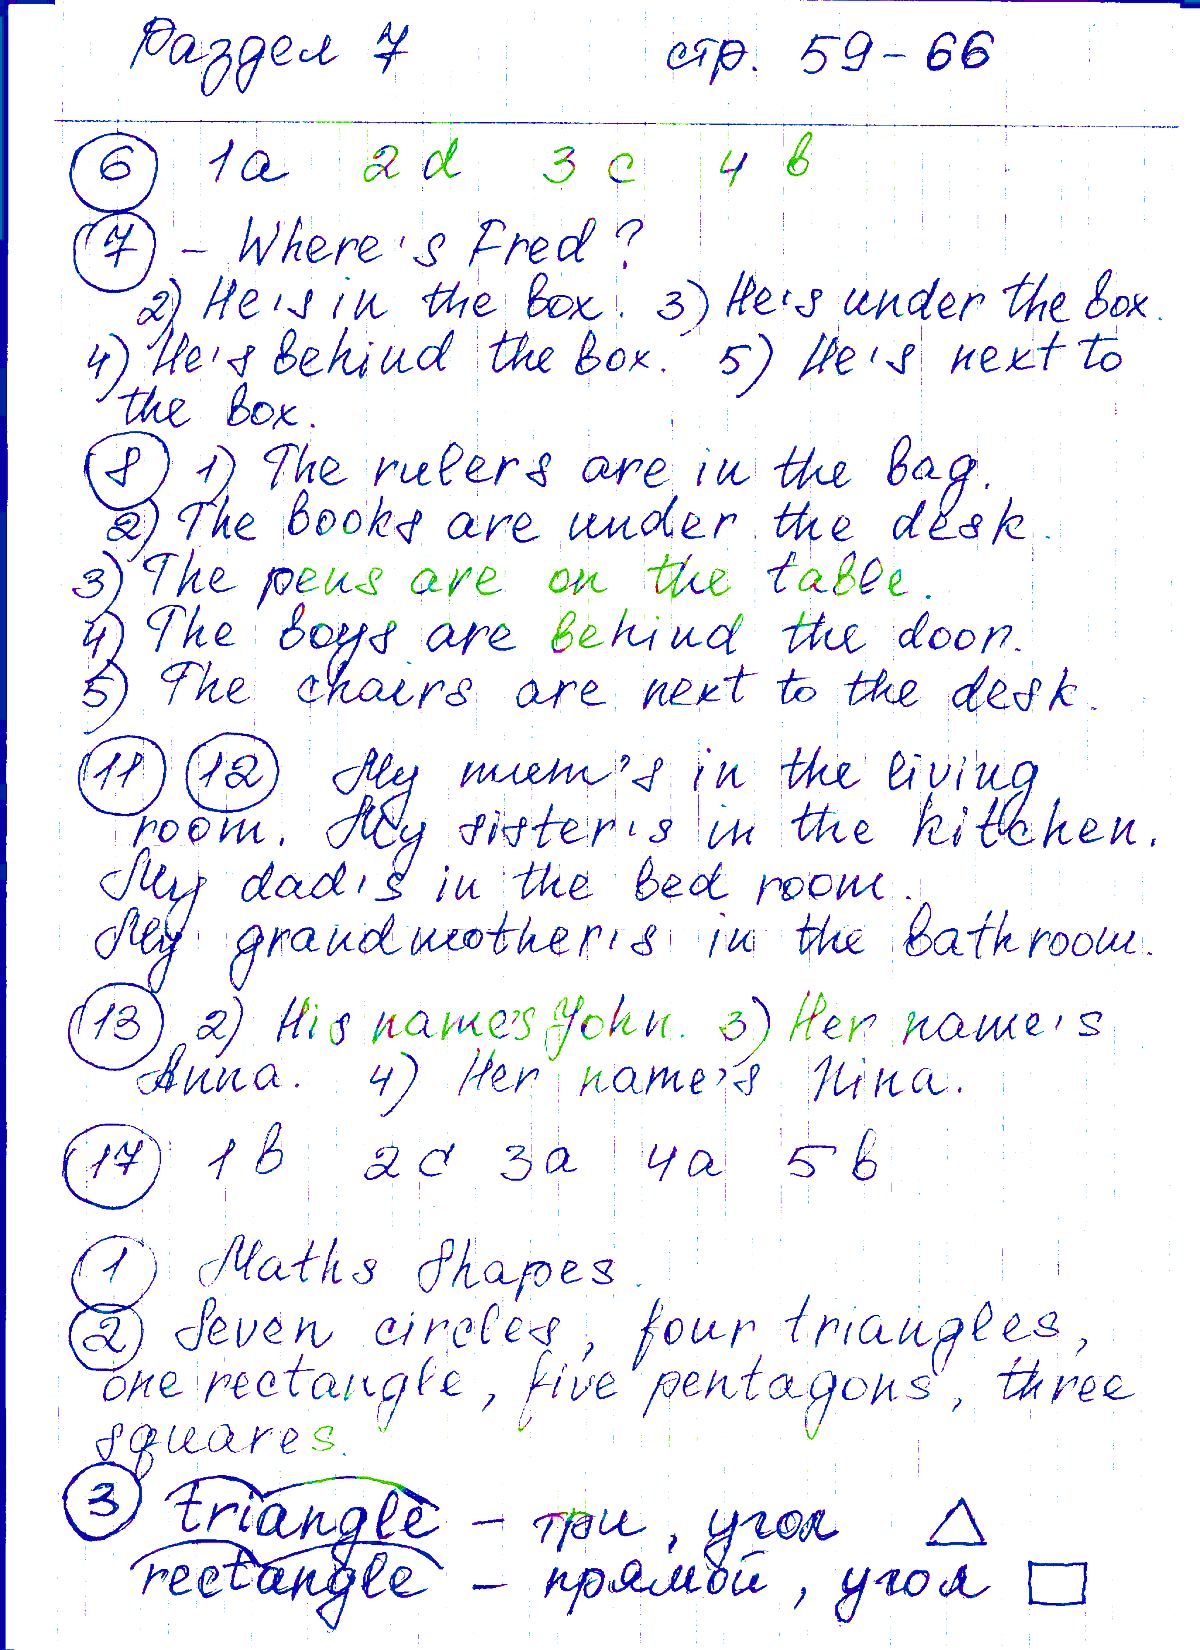 Раздел 7 стр. 59-66
6 1a 2d 3c 4b
7 - Where's Fred?
2) He's in the box. 3) He's under the box.
4) He's behind the box. 5) He's next to
the box.
8 1) The rulers are in the bag.
2) The books are under the desk.
3) The pens are on the table.
4) The boys are behind the door.
5) The chairs are next to the desk.
11 12 My mum's in the living
room. My sister's in the kitchen.
My dad's in the bed room.
My grandmother's in the bathroom.
13 2) His name's John. 3) Her name's
Anna. 4) Her name's Nina.
17 1b 2c 3a 4a 5b
1 Maths Shapes.
2 Seven circles, four triangles,
one rectangle, five pentagons, three
squares.
3 triangle - три, угол
rectangle - прямой, угол